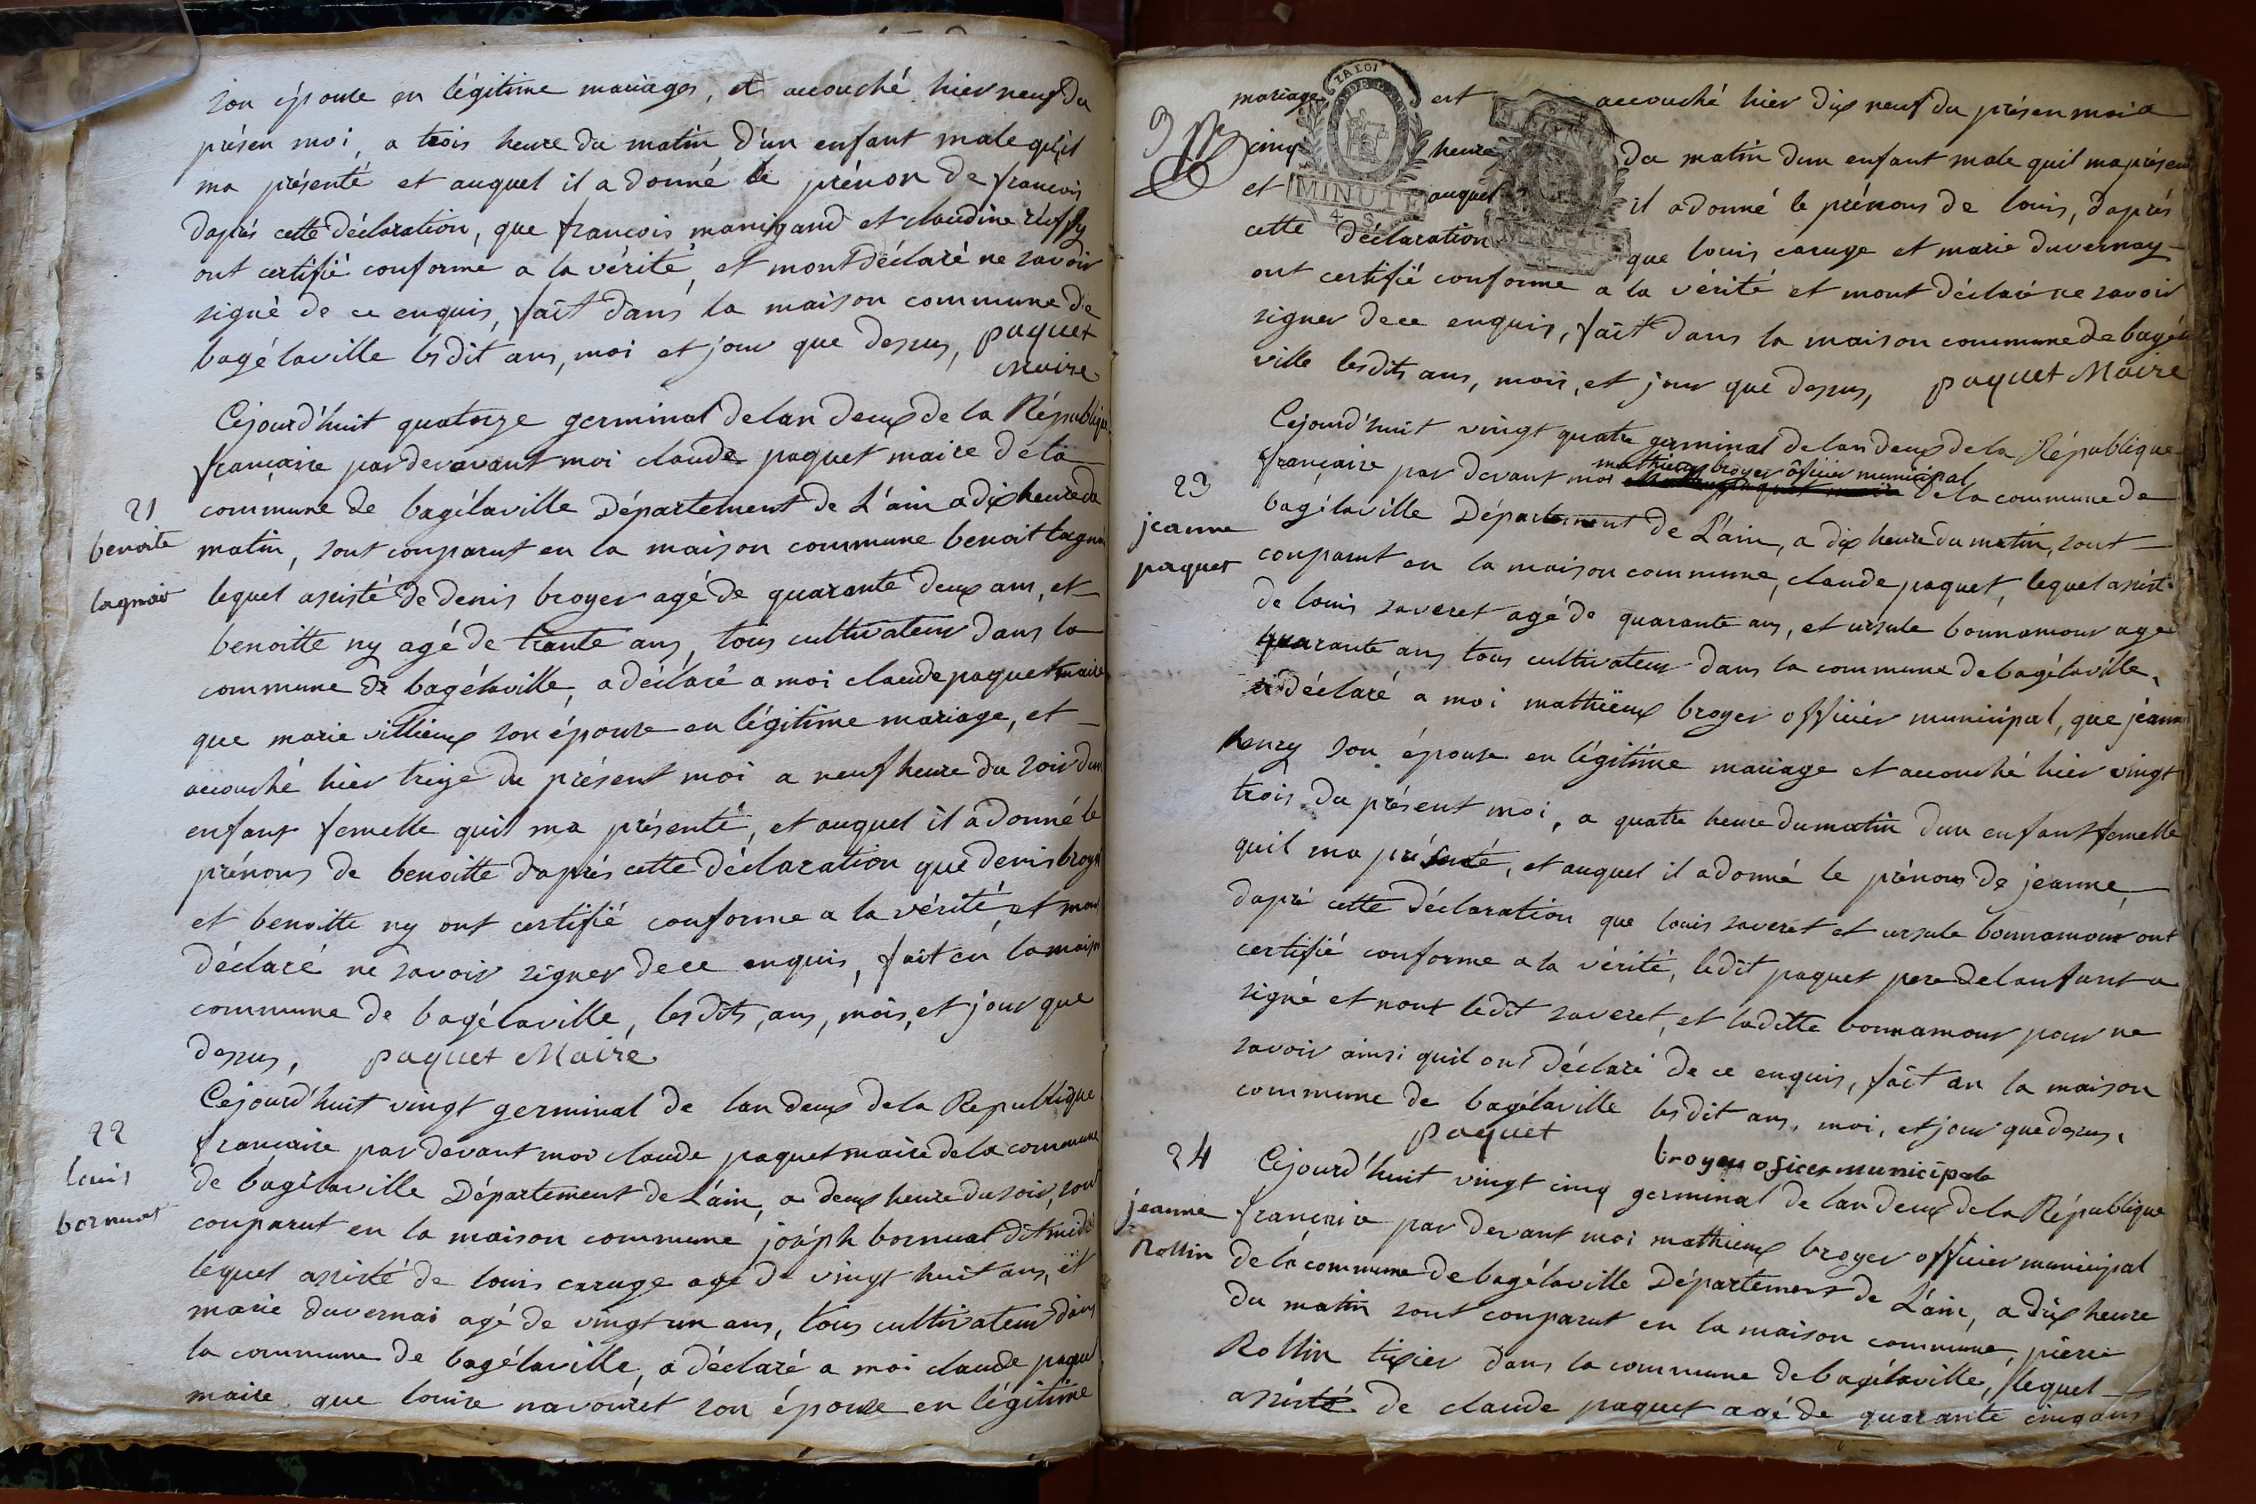 son épouse en légitime mariages, et accouché hier neuf du
présen moi, a trois heure du matin d'un enfant male qu'il
ma présenté et auquel il a donné le prénon de francois
daprés cette déclaration, que francois manigand et claudine
ont certifié conforme a la vérité, et mont déclaré ne savoir
signé de ce enquis, fait dans la maison commune de
bagé laville lesdit ans, moi et jour que desus, paquet
Maire
Cejourd'huit quatorze germinal delan deux de la République
francaise par devavant moi claude paquet maire de la
commune de bagélaville Département de L'ain a dix heure du
21
benoite
lagnier
matin, sont conparut en la maison commune benoit
lequel assisté de denis broyer agé de quarante deux ans, et
benoitte ny agé de trante ans, tous cultivateur dans la
commune de bagélaville, a déclaré a moi claude paquet maire
que marie villieux son épouse en légitime mariage, et
accouché hier treize du présent moi a neuf heure du soir dun
enfant femelle quil ma présenté, et auquel il a donné le
prénons de benoitte d'aprés cette déclaration que denis broyer
et benoitte ny ont certifié conforme a la vérité, et mont
déclaré ne savoir signer de ce enquis, fait en la maison
commune de bagélaville, lesdits, ans, mois, et jour que
desus, paquet Maire
Cejourd'huit vingt germinal de lan deux de la Republique
22
louis
bornuat
francaise par devant moi claude paquet maire de la commune
de bagélaville Département de L'ain, a deux heure du soir, sont
conparut en la maison commune joséph bornuat dit
lequel assisté de louis caruge agé de vingt huit ans, et
marie duvernai agé de vingt un ans, tous cultivateur dans
la commune de bagélaville, a déclaré a moi claude paquet
maire que louise navouret son épouse en légitime
mariage est accouché hier dix neuf du présen moi a
cinq heure du matin dun enfant male quil ma présen
et auquel il a donné le prénons de louis, daprés
cette déclaration que louis caruge et marie duvernay
LA LOI
MINUTE
4. S.
ont certifié conforme a la vérité et mont déclaré ne savoir
signer de ce enquis, fait dans la maison commune de bagéla
ville lesdits ans, mois, et jour que desus, paquet Maire
Cejourd'huit vingt quatre germinal de lan deux de la République
mathieux broyer officier municipal
francaise par devant moi de la commune de
23
jeanne
paquet
bagélaville Département de L'ain, a dix heure du matin, sont
conparut en la maison commune, claude paquet, lequel assisté
de louis saveret agé de quarante ans, et ursule bonnamour agé
quarante ans tous cultivateur dans la commune de bagélaville,
a déclaré a moi mathieux broyer officier municipal, que jeanne
henry son épouse en légitime mariage et accouché hier vingt
trois du présent moi, a quatre heure du matin dun enfant femelle
quil ma présenté, et auquel il a donné le prénons de jeanne,
dapré cette déclaration que louis saveret et ursule bonnamour ont
certifié conforme a la vérité, ledit paquet pere delanfant a
signé et nont ledit saveret, et ladite bonnamour pour ne
savoir ainsi quil ont déclaré de ce enquis, fait an la maison
commune de bagélaville lesdit ans, moi, et jour que desus,
paquet
broyer oficer municipale
24
jeanne
Rollin
Cejourd'huit vingt cinq germinal de lan deux de la République
francaise par devant moi mathieux broyer officier municipal
de la commune de bagélaville Département de L'ain, a dix heure
du matin sont conparut en la maison commune, pierre
Rollin tixier dans la commune de bagélaville, lequel
assisté de claude paquet agé de quarante cinq ans